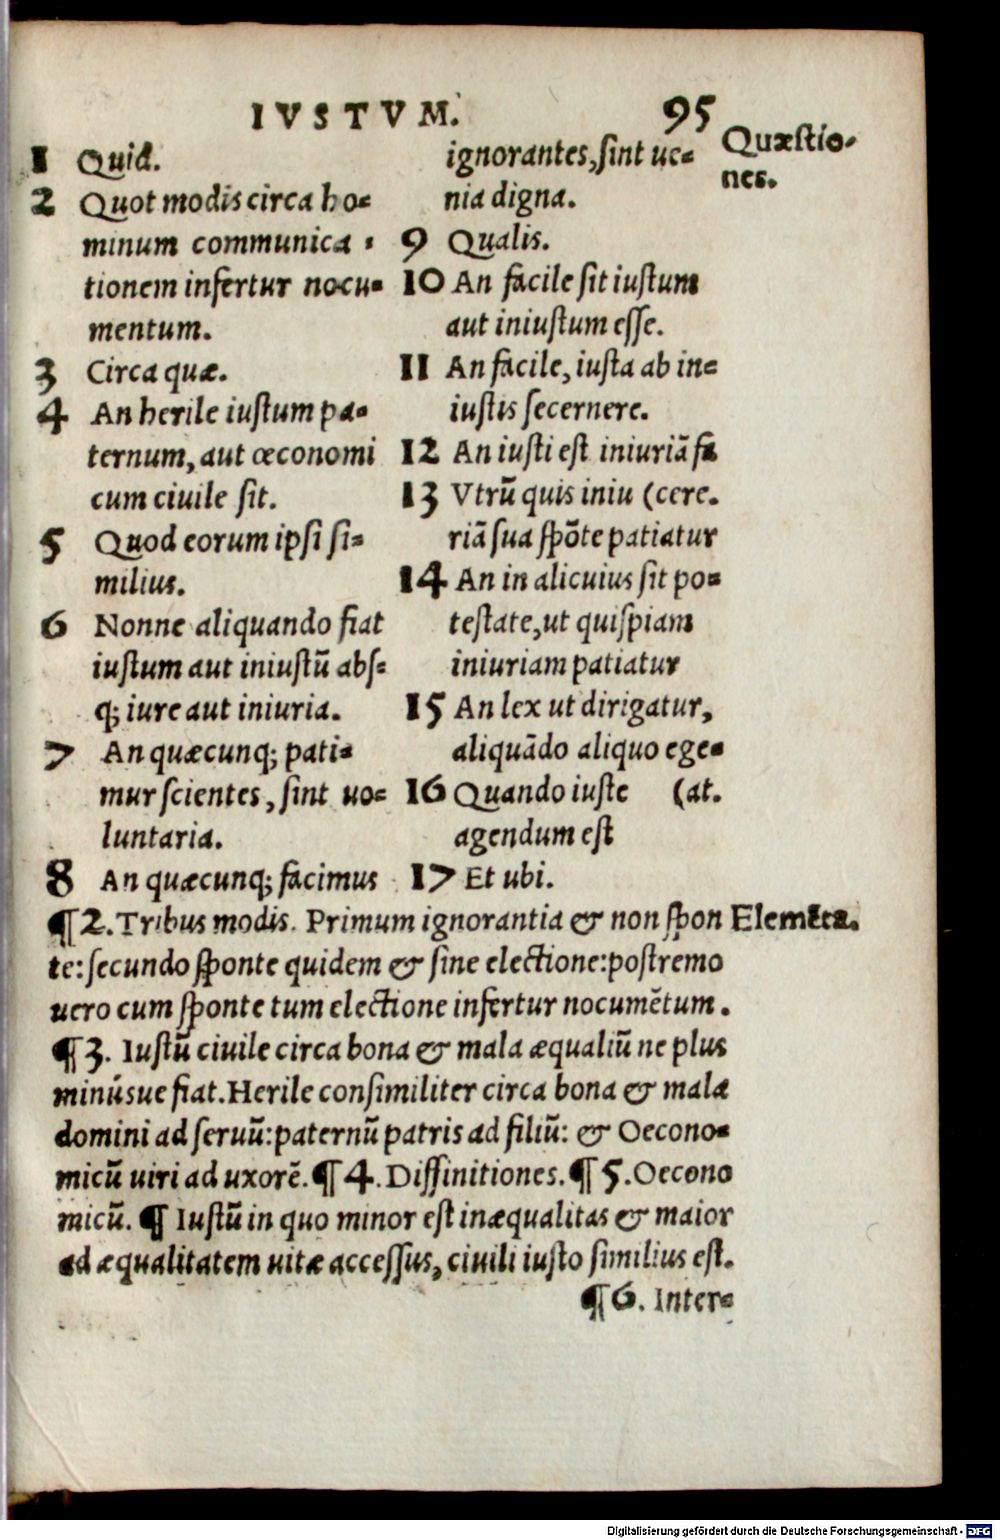 IVSTVM. 95
Quæstio-
nes.
1 Quid.
2 Quot modis circa ho-
minum communica-
tionem infertur nocu-
mentum.
3 Circa quæ.
4 An herile iustum pa-
ternum, aut œconomi
cum ciuile sit.
5 Quod eorum ipsi si-
milius.
6 Nonne aliquando fiat
iustum aut iniustū abs-
q; iure aut iniuria.
7 An quæcunq; pati-
mur scientes, sint uo-
luntaria.
8 An quæcunq; facimus
ignorantes, sint ue-
nia digna.
9 Qualis.
10 An facile sit iustum
aut iniustum esse.
11 An facile, iusta ab in-
iustis secernere.
12 An iusti est iniuriā fa
13 Vtrū quis iniu (cere.
riā sua spōte patiatur
14 An in alicuius sit po-
testate, ut quispiam
iniuriam patiatur
15 An lex ut dirigatur,
aliquādo aliquo ege-
16 Quando iuste (at.
agendum est
17 Et ubi.
¶ 2. Tribus modis. Primum ignorantia & non spon
Elemēta.
te: secundo sponte quidem & sine electione: postremo
uero cum sponte tum electione infertur nocumētum.
¶ 3. Iustū ciuile circa bona & mala æqualiū ne plus
minúsue fiat. Herile consimiliter circa bona & mala
domini ad seruū: paternū patris ad filiū: & Oecono-
micū uiri ad uxorē. ¶ 4. Diffinitiones. ¶ 5. Oecono
micū. ¶ Iustū in quo minor est inæqualitas & maior
ad æqualitatem uitæ accessus, ciuili iusto similius est.
¶ 6. Inter-
Digitalisierung gefördert durch die Deutsche Forschungsgemeinschaft - DFG